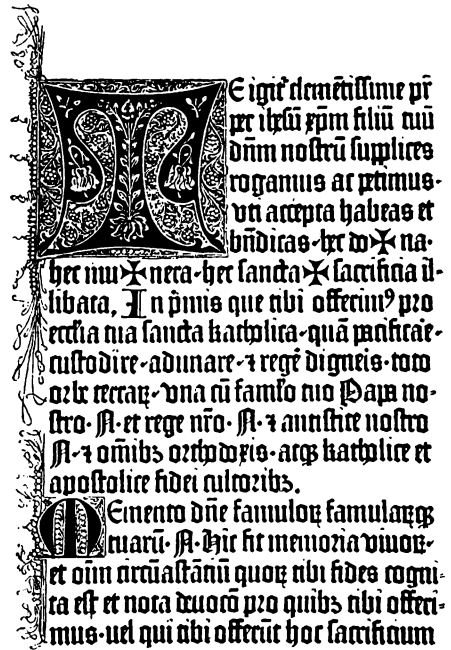 TE igit᷑ clemētissime pr̄
per ihesū xp̄m filiū tuū
dn̄m nostrū supplices
rogamus ac petimus·
vti accepta habeas et
bn̄dicas·hec do✠na·
hec mu✠nera·hec sancta✠sacrificia il-
libata, In p̄mis que tibi offerim⁹ pro
eccl̄ia tua sancta katholica·quā pacificare·
custodire·adunare·⁊ regē digneis·toto
orbe terraꝝ·vna cū famlo tuo Papa no-
stro·N·et rege nr̄o·N·⁊ antistite nostro
N·⁊ om̄ibꝫ orthodoxis·atqꝫ katholice et
apostolice fidei cultoribꝫ.
MEmento dn̄e famuloꝝ famulaꝝqꝫ
tuarū·N·Hic fit memoria viuoꝝ·
et om̄ circūastātiū quoꝝ tibi fides cogni-
ta est et nota deuocō pro quibꝫ tibi offeri-
mus·uel qui tibi offerūt hoc sacrificium